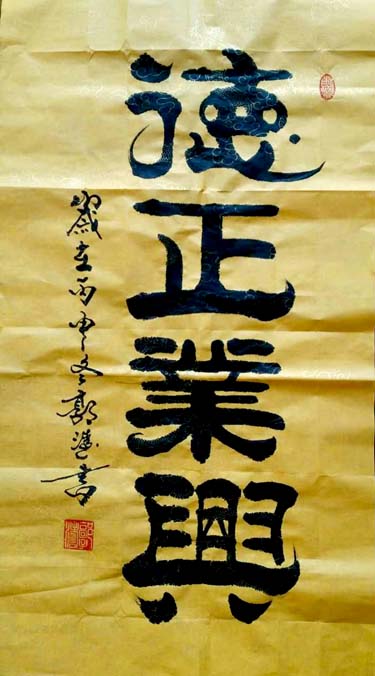 德正業興
歲在丙申冬郭進書